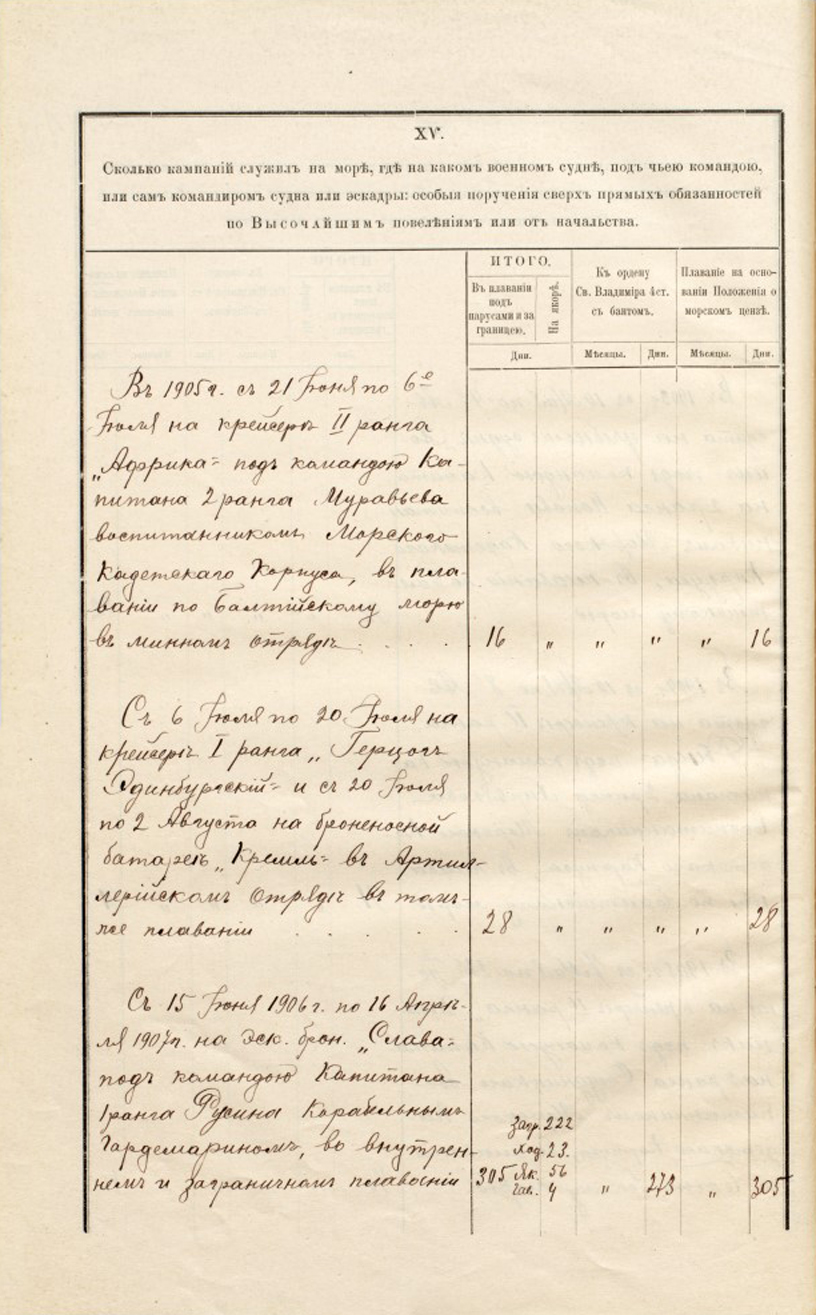 XV.
Сколько кампаній служилъ на морѣ, гдѣ на какомъ военномъ суднѣ, подъ чьею командою,
или самъ командиромъ судна или эскадры: особыя порученія сверхъ прямыхъ обязанностей
по Высочайшимъ повелѣніямъ или отъ начальства.
ИТОГО.
Въ плаваніи
подъ
парусами и за
границею.
На якорѣ.
Къ ордену
Св. Владиміра 4 ст.
съ бантомъ.
Плаваніе на осно-
ваніи Положенія о
морскомъ цензѣ.
Дни.
Мѣсяцы.
Дни.
Мѣсяцы.
Дни.
Въ 1905 г. съ 21 Іюня по 6е
Іюля на крейсерѣ II ранга
„Африка" подъ командою Ка-
питана 2 ранга Муравьева
воспитанникомъ Морского
Кадетскаго Корпуса, въ пла-
ваніи по Балтійскому морю
въ минномъ отрядѣ . . . .
16 „ „ „ „ 16
Съ 6 Іюля по 20 Іюля на
крейсерѣ I ранга „Герцогъ
Эдинбургскій" и съ 20 Іюля
по 2 Августа на броненосной
батареѣ „Кремль" въ Артил-
лерійскомъ отрядѣ въ томъ-
же плаваніи . . . .
28 „ „ „ „ 28
Съ 15 Іюня 1906 г. по 16 Апрѣ-
ля 1907 г. на эск. брон. „Слава"
подъ командою Капитана
1 ранга Русина Корабельнымъ
Гардемариномъ, во внутрен-
немъ и заграничномъ плаваніи
Загр. 222
Ход. 23.
305 Як. 56
Гав. 4
„ 273 „ 305